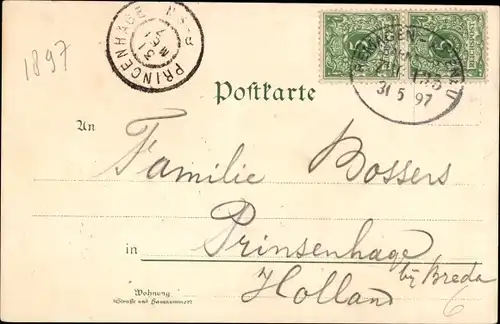 1897
PRINCENHAGE
5
31 5 97
Postkarte
An
Familie Bossers
in Prinsenhage
by Breda
Holland
Wohnung
(Straße und Hausnummer)
6